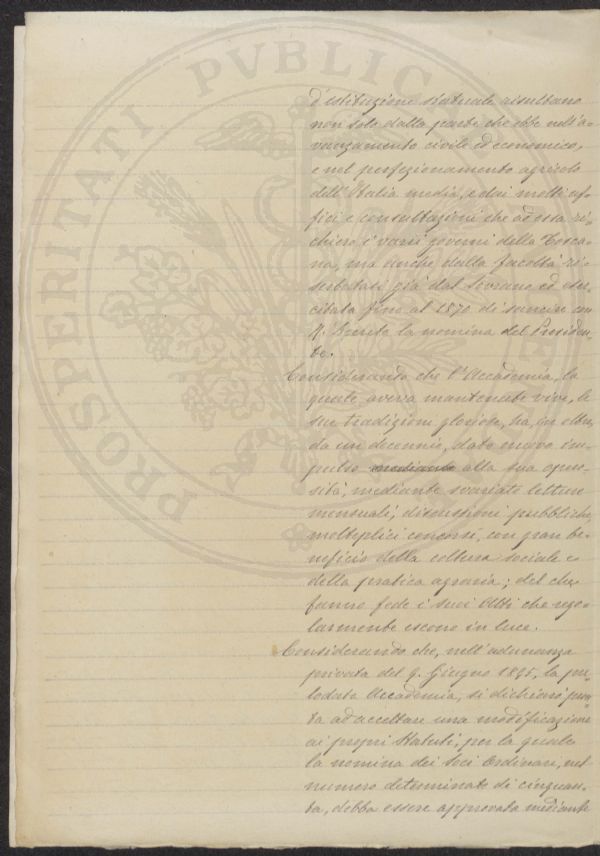 PROSPERITATI PVBLICAE
d'istituzione statuale risultano
non solo dalla parte che ebbe nell'a-
vanzamento civile ed economico,
e nel perfezionamento agricolo
dell'Italia media, e dai molti uf-
fici e consultazioni che ad essa ri-
chiesero i varii governi della Tosca-
na, ma anche dalla facoltà ri-
serbatasi già dal Sovrano ed eser-
citata fino al 1870 di sancire con
R. Decreto la nomina del Presiden-
te.
Considerando che l'Accademia, la
quale aveva mantenute vive, le
sue tradizioni gloriose, ha, in oltre
da un decennio, dato nuovo im-
pulso mediante alla sua opero-
sità, mediante svariate letture
mensuali, discussioni pubbliche,
molteplici concorsi, con gran be-
neficio della coltura sociale e
della pratica agraria; del che
fanno fede i suoi Atti che rego-
larmente escono in luce.
Considerando che, nell'adunanza
privata del 9. Giugno 1895, la pre-
lodata Accademia, si dichiarò pron-
ta ad accettare una modificazione
ai propri Statuti, per la quale
la nomina dei Soci Ordinari, nel
numero determinato di cinquan-
ta, debba essere approvata mediante